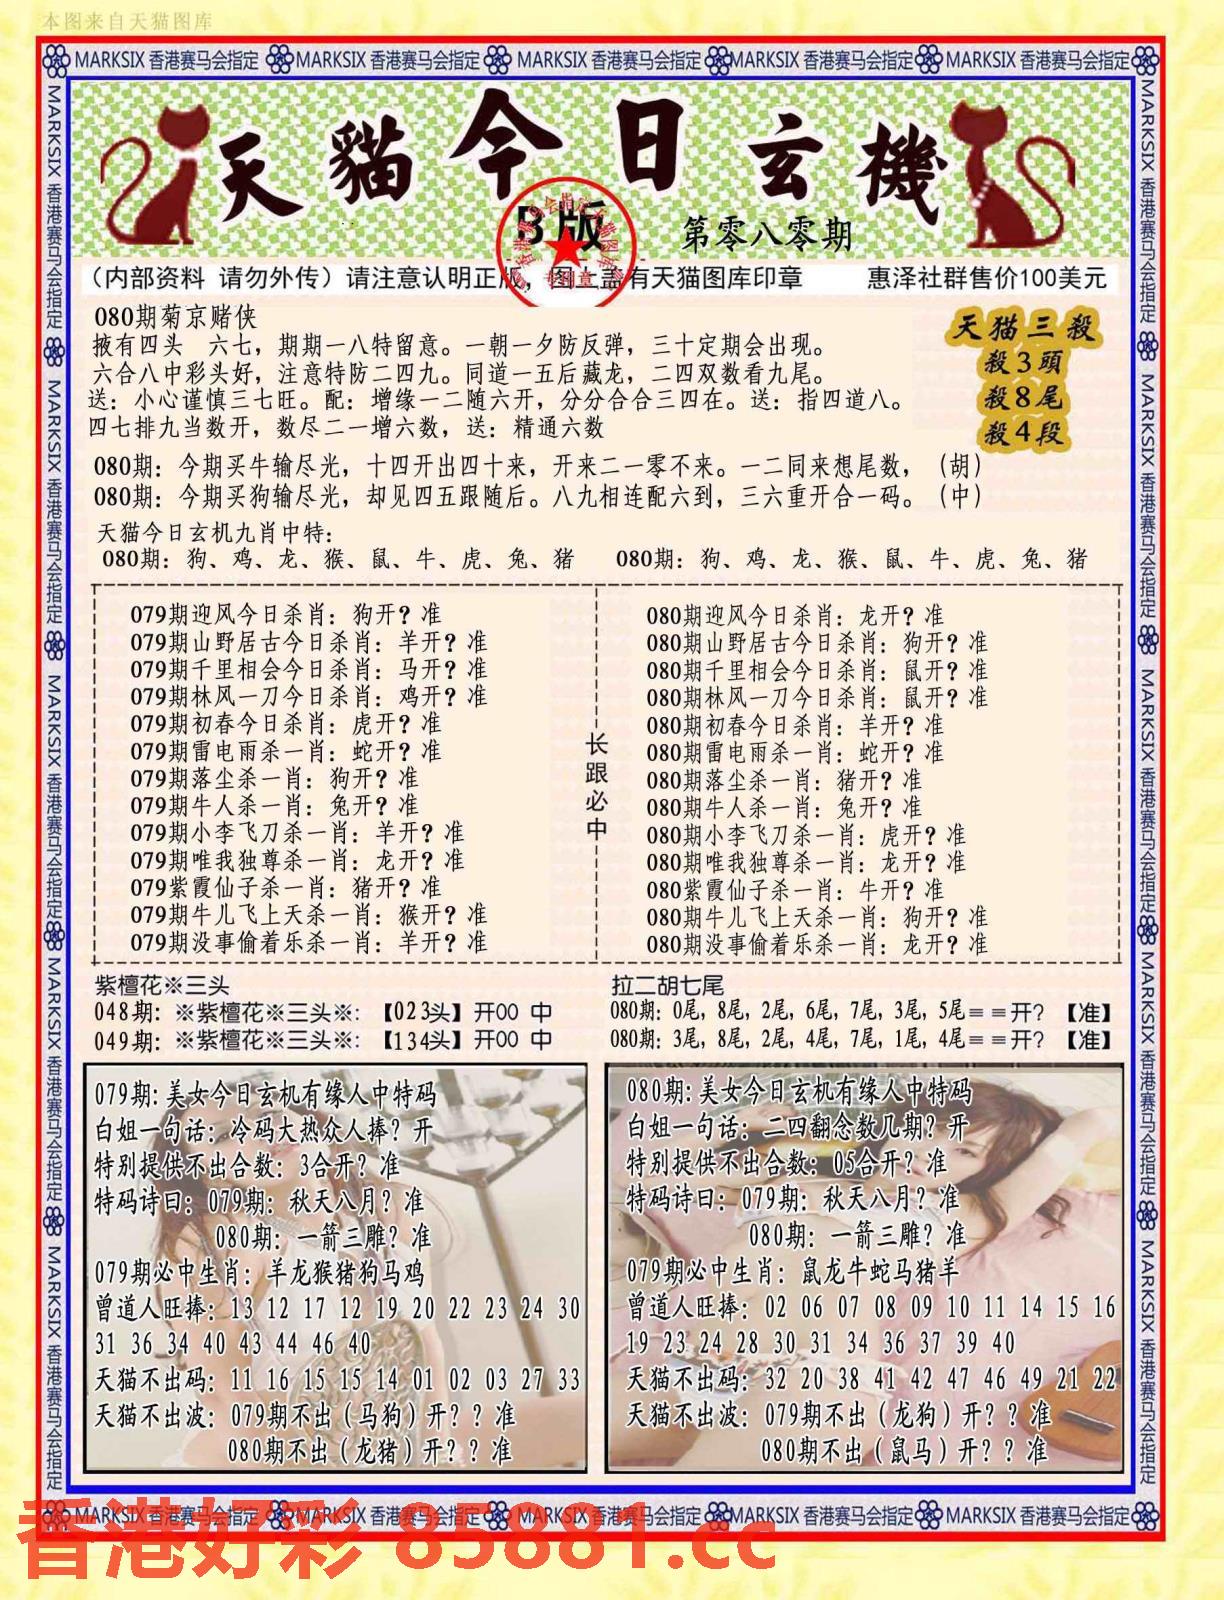 本图来自天猫图库
MARKSIX 香港赛马会指定 MARKSIX 香港赛马会指定 MARKSIX 香港赛马会指定 MARKSIX 香港赛马会指定 MARKSIX 香港赛马会指定
天貓今日玄機
B版
第零八零期
（内部资料 请勿外传）请注意认明正版，图上盖有天猫图库印章 惠泽社群售价100美元
080期菊京赌侠
掖有四头 六七，期期一八特留意。一朝一夕防反弹，三十定期会出现。
六合八中彩头好，注意特防二四九。同道一五后藏龙，二四双数看九尾。
送：小心谨慎三七旺。配：增缘一二随六开，分分合合三四在。送：指四道八。
四七排九当数开，数尽二一增六数，送：精通六数
天猫三殺
殺3頭
殺8尾
殺4段
080期：今期买牛输尽光，十四开出四十来，开来二一零不来。一二同来想尾数，（胡）
080期：今期买狗输尽光，却见四五跟随后。八九相连配六到，三六重开合一码。（中）
天猫今日玄机九肖中特：
080期：狗、鸡、龙、猴、鼠、牛、虎、兔、猪 080期：狗、鸡、龙、猴、鼠、牛、虎、兔、猪
079期迎风今日杀肖：狗开？准
079期山野居古今日杀肖：羊开？准
079期千里相会今日杀肖：马开？准
079期林风一刀今日杀肖：鸡开？准
079期初春今日杀肖：虎开？准
079期雷电雨杀一肖：蛇开？准
079期落尘杀一肖：狗开？准
079期牛人杀一肖：兔开？准
079期小李飞刀杀一肖：羊开？准
079期唯我独尊杀一肖：龙开？准
079紫霞仙子杀一肖：猪开？准
079期牛儿飞上天杀一肖：猴开？准
079期没事偷着乐杀一肖：羊开？准
长跟必中
080期迎风今日杀肖：龙开？准
080期山野居古今日杀肖：狗开？准
080期千里相会今日杀肖：鼠开？准
080期林风一刀今日杀肖：鼠开？准
080期初春今日杀肖：羊开？准
080期雷电雨杀一肖：蛇开？准
080期落尘杀一肖：猪开？准
080期牛人杀一肖：兔开？准
080期小李飞刀杀一肖：虎开？准
080期唯我独尊杀一肖：龙开？准
080紫霞仙子杀一肖：牛开？准
080期牛儿飞上天杀一肖：狗开？准
080期没事偷着乐杀一肖：龙开？准
紫檀花※三头
048期：※紫檀花※三头※：【023头】开00 中
049期：※紫檀花※三头※：【134头】开00 中
拉二胡七尾
080期：0尾，8尾，2尾，6尾，7尾，3尾，5尾==开？【准】
080期：3尾，8尾，2尾，4尾，7尾，1尾，4尾==开？【准】
079期：美女今日玄机有缘人中特码
白姐一句话：冷码大热众人捧？开
特别提供不出合数：3合开？准
特码诗曰：079期：秋天八月？准
080期：一箭三雕？准
079期必中生肖：羊龙猴猪狗马鸡
曾道人旺捧：13 12 17 12 19 20 22 23 24 30
31 36 34 40 43 44 46 40
天猫不出码：11 16 15 15 14 01 02 03 27 33
天猫不出波：079期不出（马狗）开？？准
080期不出（龙猪）开？？准
080期：美女今日玄机有缘人中特码
白姐一句话：二四翻念数几期？开
特别提供不出合数：05合开？准
特码诗曰：079期：秋天八月？准
080期：一箭三雕？准
079期必中生肖：鼠龙牛蛇马猪羊
曾道人旺捧：02 06 07 08 09 10 11 14 15 16
19 23 24 28 30 31 34 36 37 39 40
天猫不出码：32 20 38 41 42 47 46 49 21 22
天猫不出波：079期不出（龙狗）开？？准
080期不出（鼠马）开？？准
MARKSIX 香港赛马会指定 MARKSIX 香港赛马会指定 MARKSIX 香港赛马会指定 MARKSIX 香港赛马会指定 MARKSIX 香港赛马会指定
香港好彩 85881.cc
MARKSIX 香港赛马会指定 MARKSIX 香港赛马会指定 MARKSIX 香港赛马会指定 MARKSIX 香港赛马会指定 MARKSIX 香港赛马会指定
MARKSIX 香港赛马会指定 MARKSIX 香港赛马会指定 MARKSIX 香港赛马会指定 MARKSIX 香港赛马会指定 MARKSIX 香港赛马会指定